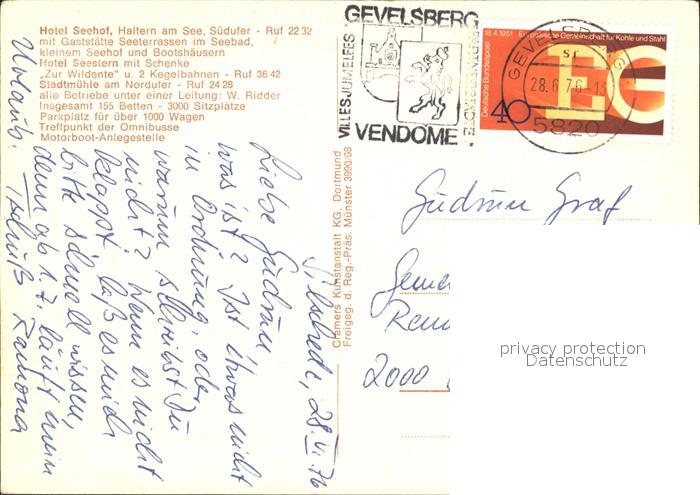 Hotel Seehof, Haltern am See, Südufer - Ruf 22 32
mit Gaststätte Seeterrassen im Seebad,
kleinem Seehof und Bootshäusern
Hotel Seestern mit Schenke
„Zur Wildente" u. 2 Kegelbahnen - Ruf 36 42
Stadtmühle am Nordufer - Ruf 24 28
alle Betriebe unter einer Leitung: W. Ridder
Insgesamt 155 Betten - 3000 Sitzplätze
Parkplatz für über 1000 Wagen
Treffpunkt der Omnibusse
Motorboot-Anlegestelle
Silschede, 28. VI. 76
Liebe Gudrun
was ist? Ist etwas nicht
in Ordnung, oder
warum schreibst Du
nicht? Wenn es nicht
klappt laß es mich
bitte schnell wissen,
denn ab 1.7. läuft mein
Urlaub. Tschüß Ramona
Cramers Kunstanstalt KG, Dortmund
Freigeg. d. Reg.-Präs. Münster 3990/68
GEVELSBERG
VILLES JUMELEES
PARTNERSTÄDTE
VENDOME
GEVELSBERG
sr
28.6.76-13
5820
18.4.1951 Europäische Gemeinschaft für Kohle und Stahl
Deutsche Bundespost
40
Gudrun Graf
2000
privacy protection
Datenschutz